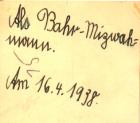 Als Bahr-Mizwah-
mann.
Am 16.4.1938.